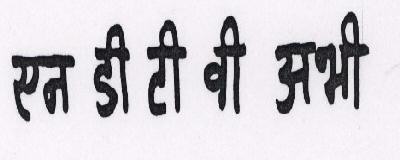 एन डी टी वी अभी